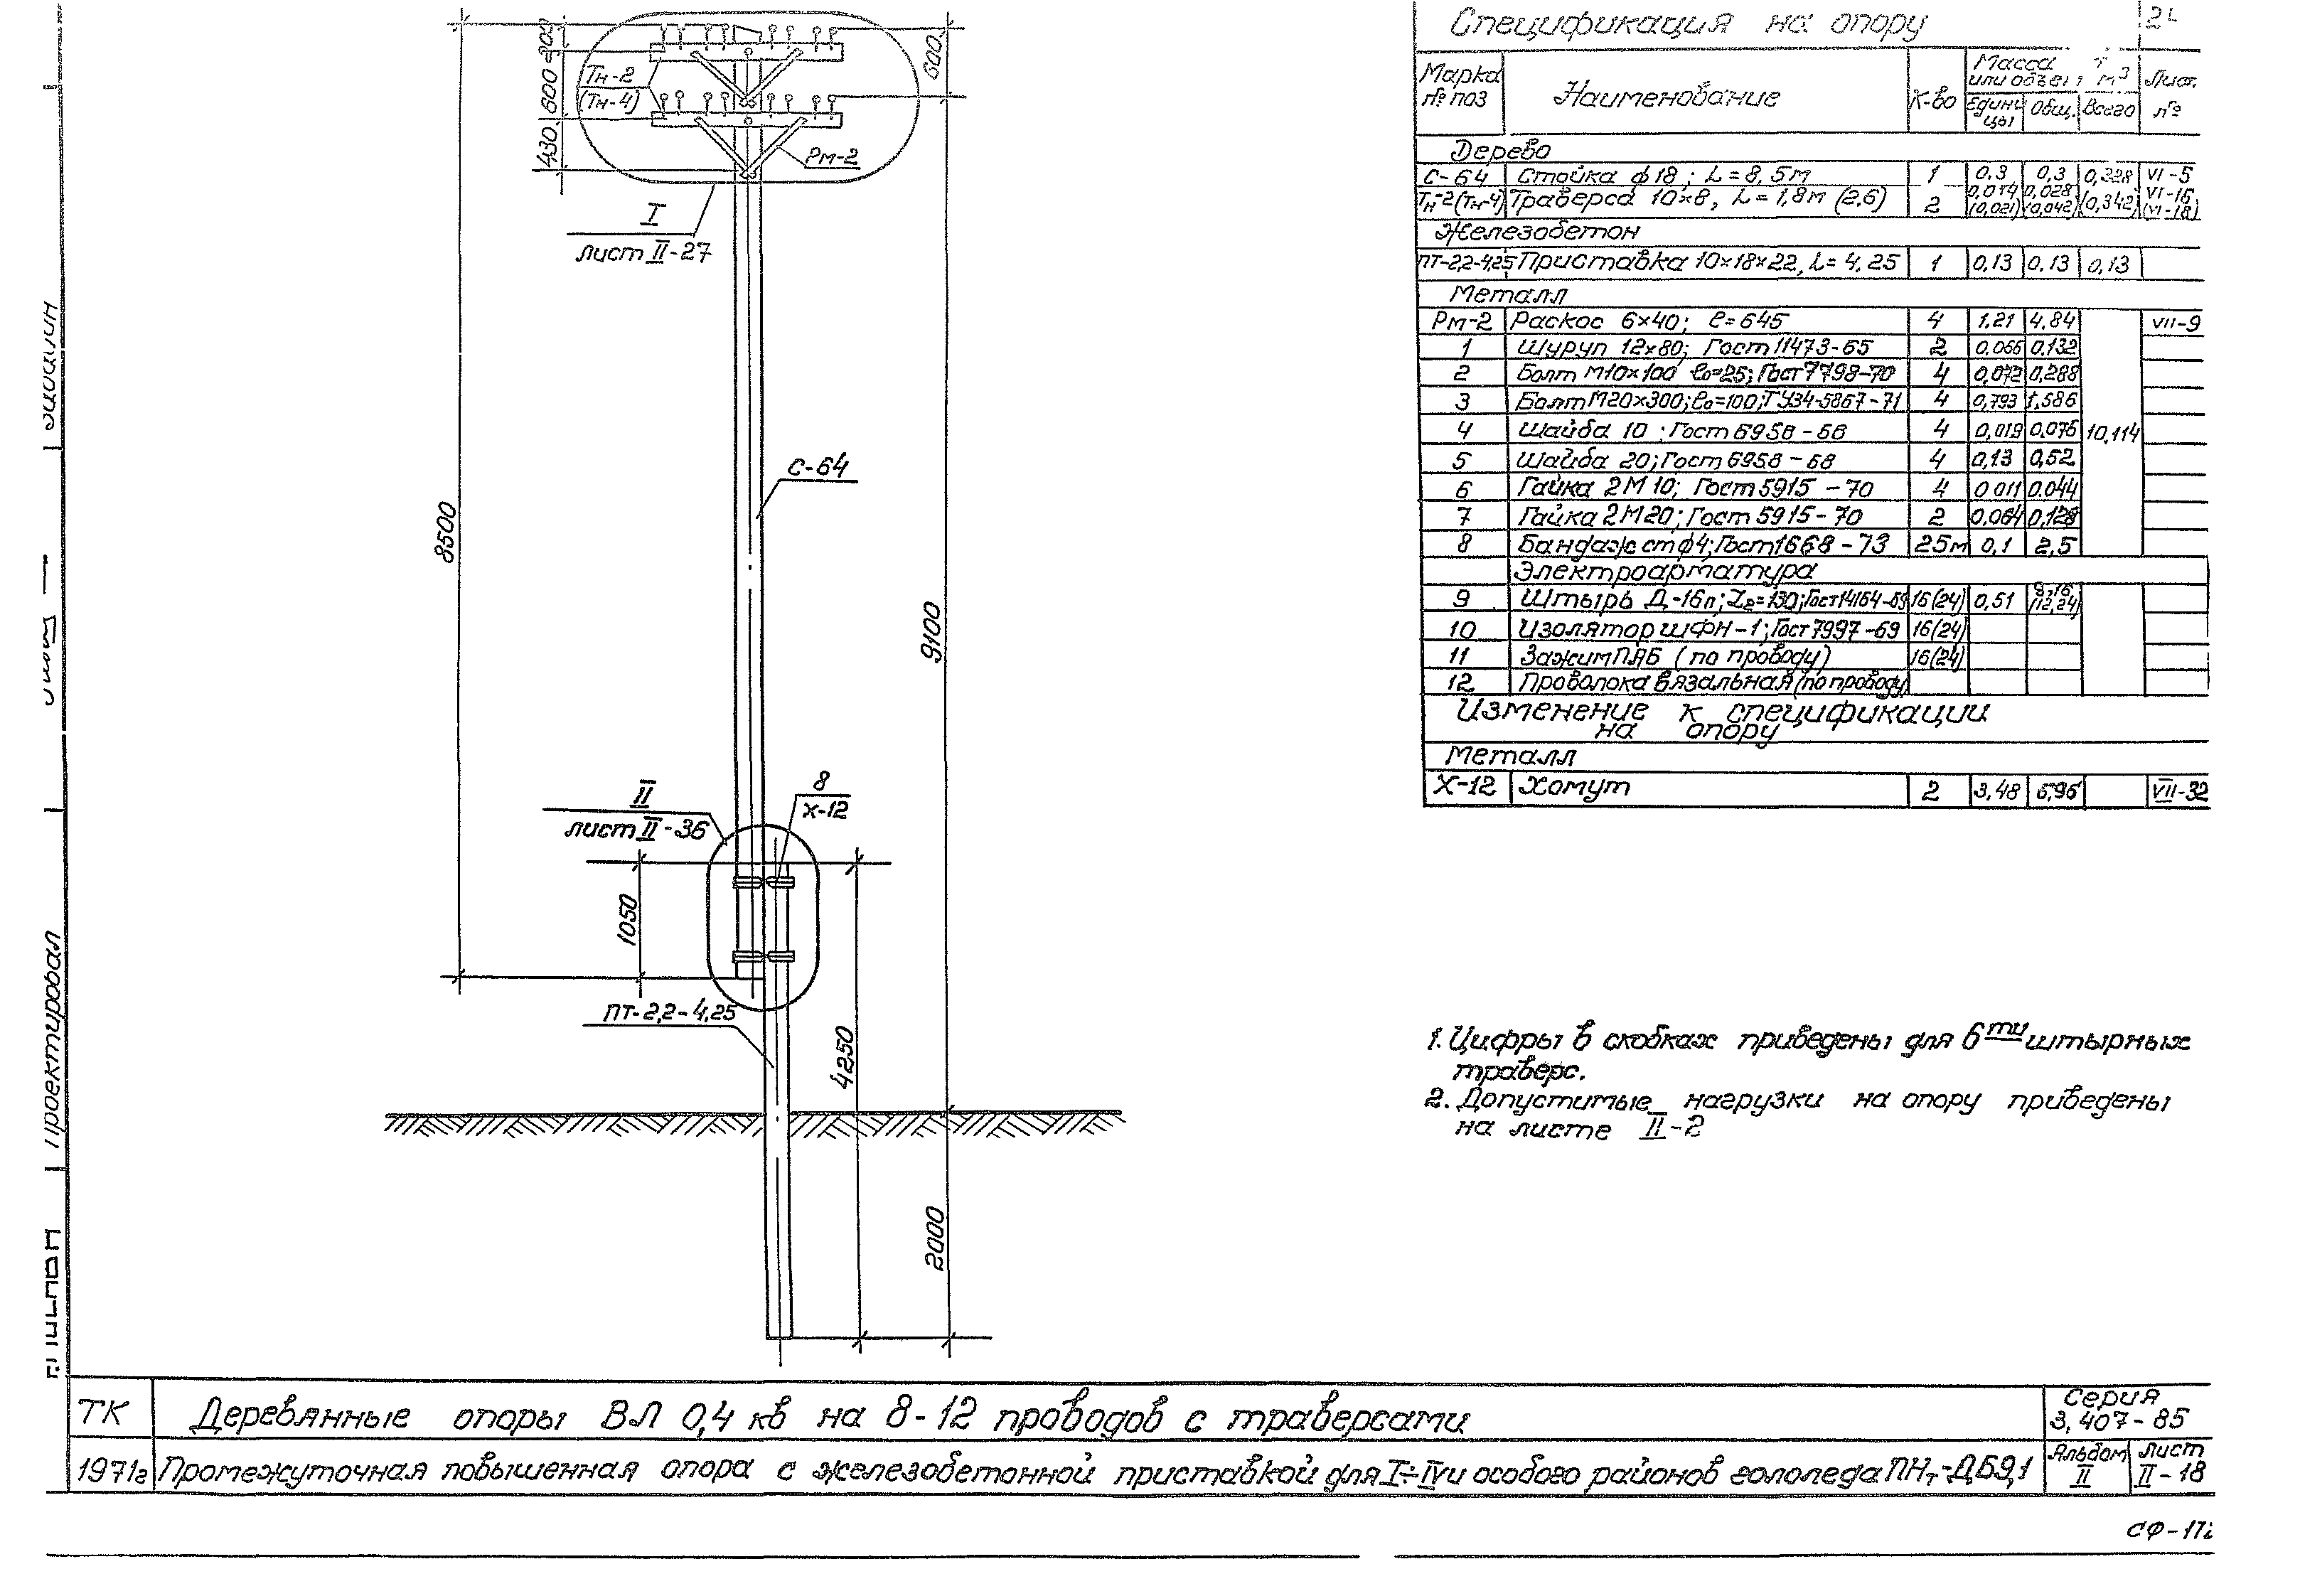 600
430
600
Тн-2
(Тн-4)
Рм-2
I
лист II-27
С-64
8500
9100
II
лист II-36
8
Х-12
1050
ПТ-2,2-4,25
4250
2000
Спецификация на опору
Марка № поз Наименование К-во Масса или объем м³ Лист №
Едини цы Общ. Всего
Дерево
С-64 Стойка ф18; L=8,5м 1 0,3 0,3 0,328 VI-5
Тн-2(Тн-4) Траверса 10×8, L=1,8м (2,6) 2 0,014 (0,021) 0,028 (0,042) (0,342) VI-16 (VI-18)
Железобетон
ПТ-2,2-4,25 Приставка 10×18×22, L=4,25 1 0,13 0,13 0,13
Металл
Рм-2 Раскос 6×40; ℓ=645 4 1,21 4,84 VII-9
1 Шуруп 12×80; Гост 11473-65 2 0,066 0,132
2 Болт М10×100 ℓо=25; Гост 7798-70 4 0,072 0,288
3 Болт М20×300; ℓо=100; ТУ34-5867-71 4 0,793 1,586
4 Шайба 10; Гост 6958-68 4 0,019 0,076 10,114
5 Шайба 20; Гост 6958-68 4 0,13 0,52
6 Гайка 2М10; Гост 5915-70 4 0 011 0.044
7 Гайка 2М20; Гост 5915-70 2 0,064 0,128
8 Бандаж ст ф4; Гост 1668-73 25м 0,1 2,5
Электроарматура
9 Штырь Д-16п; =130; Гост 14164-69 16(24) 0,51 8,16 (12,24)
10 Изолятор ШФН-1; Гост 7997-69 16(24)
11 Зажим ПАБ (по проводу) 16(24)
12 Проволока вязальная (по проводу)
Изменение к спецификации
на опору
Металл
Х-12 Хомут 2 3,48 6,96 VII-32
1. Цифры в скобках приведены для 6ти штырных
траверс.
2. Допустимые нагрузки на опору приведены
на листе II-2
проектировал
ТК Деревянные опоры ВЛ 0,4 кв на 8-12 проводов с траверсами Серия 3,407-85
1971г Промежуточная повышенная опора с железобетонной приставкой для I÷IV и особого районов гололеда ПНт-ДБ9,1 Альбом II лист II-18